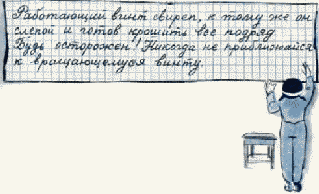 Работающий винт свиреп, к тому же он
слепой и готов крошить все подряд.
Будь осторожен! Никогда не приближайся
к вращающемуся винту